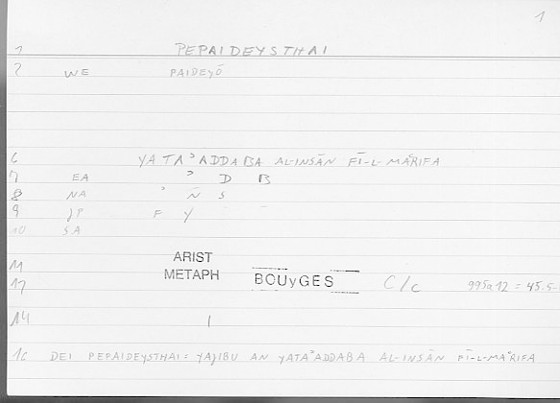 1
1 PEPAIDEYSTHAI
2 WE PAIDEYŌ
6 YATAʾADDABA AL-INSĀN FĪ-L-MAʿRIFA
7 EA ʾ D B
8 NA ʾ N S
9 JP F Y
10 SA
11 ARIST
METAPH
12 BOUyGES C/c 995a12 = 45.5-
14 1
16 DEI PEPAIDEYSTHAI = YAJIBU AN YATAʾADDABA AL-INSĀN FĪ-L-MAʿRIFA